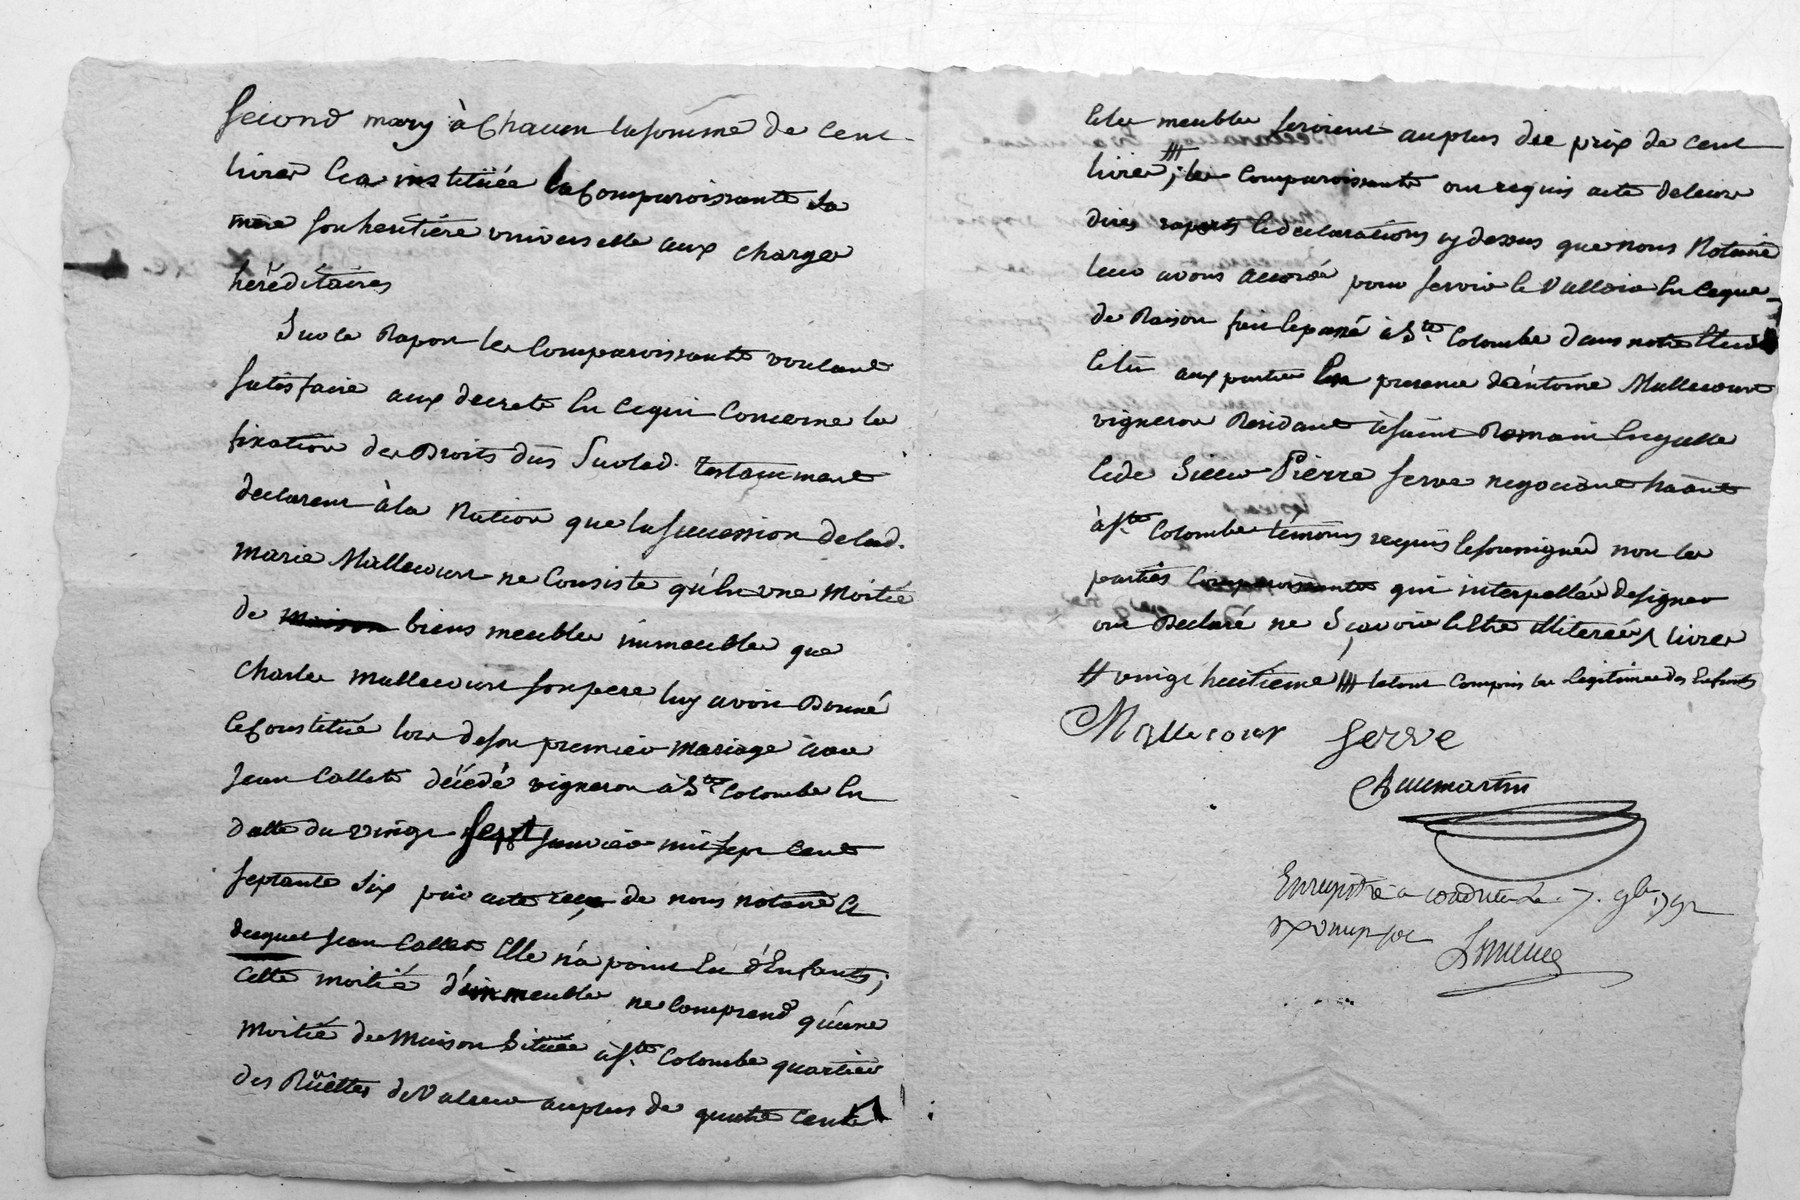 Second mary à Chacun la somme de cent
livres Et a instituée la Comparoissante Sa
mere son heritière universelle aux charges
héréditaires
Sur ce Rapport les Comparoissants voulant
Satisfaire aux decrets En ce qui Concerne la
fixation des Droits dus Sur led. testament
declarent à la Nation que la succession de lad.
marie Mallecourt ne Consiste qu'En une Moitié
de biens meubles immeubles que
Charles Mallecourt son pere luy avoit Donné
Et Constitué lors de son premier mariage avec
Jean Collet décédé vigneron à Ste Colombe En
datte du vingt Sept Janvier mil sept Cent
septante Six par acte reçu de nous notaire Et
duquel Jean Collet Elle n'a point Eu d'Enfants;
Cette moitié d'immeubles ne Comprend qu'une
Moitié de Maison Située à Ste Colombe quartier
des Rüettes de Valeur au plus de quatre Cent
Et les meubles seroient au plus de prix de Cent
livres; les Comparoissants ont requis acte de leurs
dires raports Et declarations cy dessus que nous Notaire
leur avons accordé pour servir Et Valloir En ce que
de Raison fait Et passé à Ste Colombe dans notre Etude
Et lu aux parties En presence d'antoine Mallecourt
vigneron Residant à Saint Romain En galle
Et de Sieur Pierre Serve negociant habitant
à Ste Colombe témoins requis Et soussignés non les
parties Comparoissantes qui interpellées de signer
ont Declaré ne Sçavoir Et Etre illiterées livres
# vingt huitieme #// le tout Compris les légitimes des Enfants
Mallecour Serve
Chaumartin
Enregistré a Condrieu Le 7. 9bre 1792